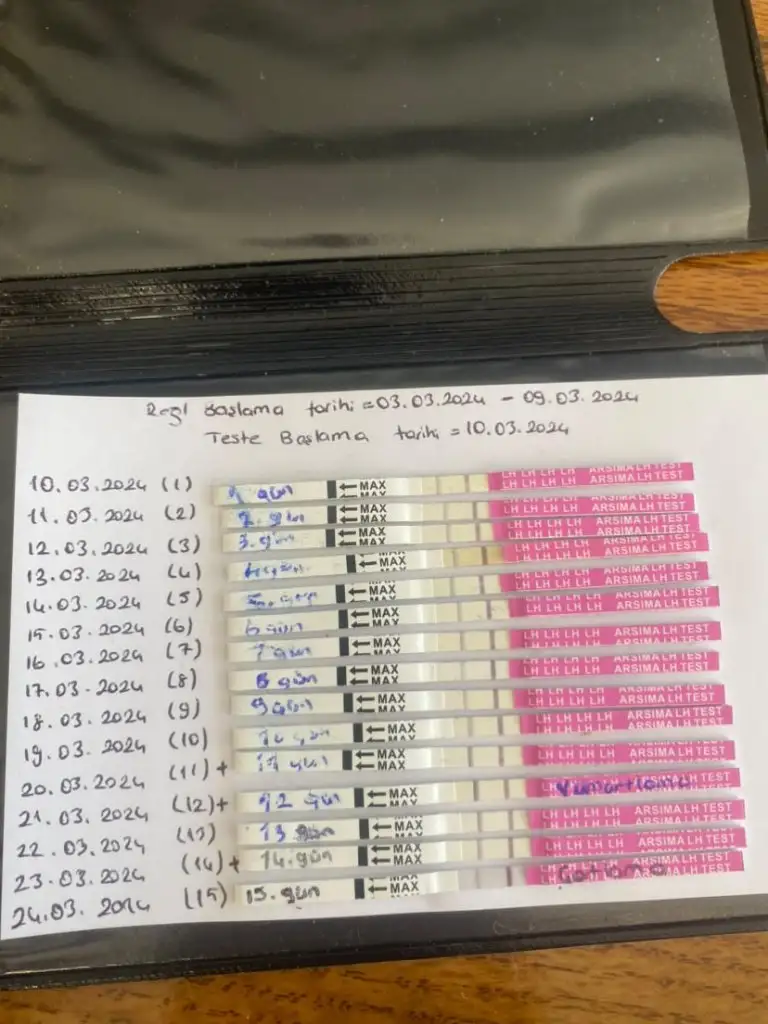 Regl Başlama tarihi = 03.03.2024 - 09.03.2024
Teste Başlama tarihi = 10.03.2024
10.03.2024 (1) 1 gün MAX MAX LH LH LH LH ARSIMA LH TEST LH LH LH LH ARSIMA LH TEST
11.03.2024 (2) 2. gün MAX MAX LH LH LH LH ARSIMA LH TEST
12.03.2024 (3) 3. gün MAX MAX LH LH LH LH ARSIMA LH TEST
13.03.2024 (4) MAX LH LH LH LH ARSIMA LH TEST
14.03.2024 (5) MAX MAX LH LH LH LH ARSIMA LH TEST
15.03.2024 (6) 6 gün MAX MAX LH LH LH LH ARSIMA LH TEST
16.03.2024 (7) 7 gün MAX MAX LH LH LH LH ARSIMA LH TEST
17.03.2024 (8) 8 gün MAX MAX LH LH LH LH ARSIMA LH TEST
18.03.2024 (9) 9 gün MAX MAX LH LH LH LH ARSIMA LH TEST
19.03.2024 (10) 10 gün MAX MAX LH LH LH LH ARSIMA LH TEST
20.03.2024 (11) + 11 gün MAX MAX LH LH LH LH ARSIMA LH TEST
21.03.2024 (12) + 12 gün MAX MAX Yumurtlama
22.03.2024 (13) 13 gün MAX MAX LH LH LH LH ARSIMA LH TEST
23.03.2024 (14) + 14. gün MAX MAX LH LH LH LH ARSIMA LH TEST
24.03.2014 (15) 15. gün MAX MAX ARSIMA LH TEST